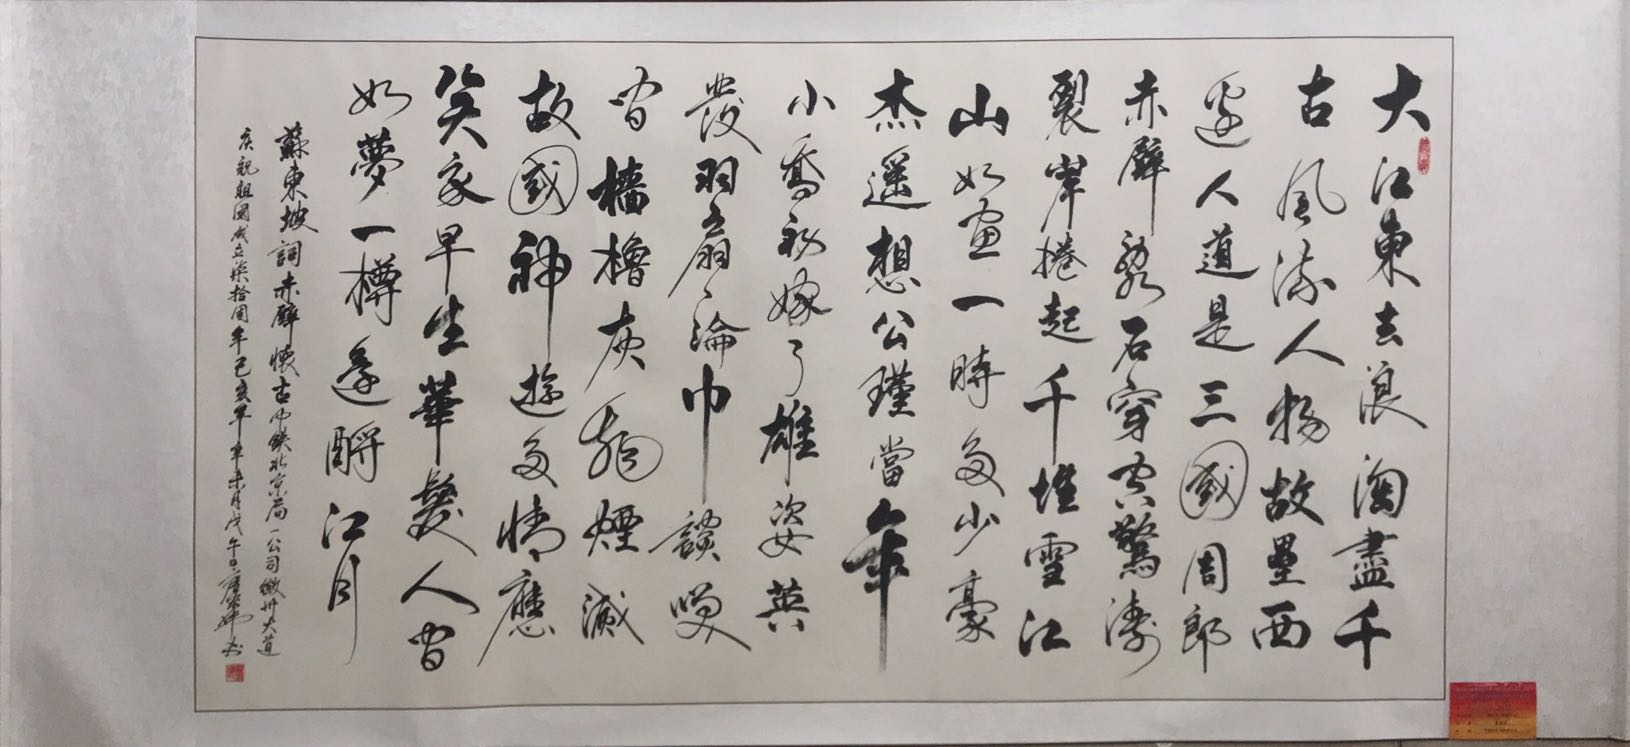 大江東去浪淘盡千
古風流人物故壘西
邊人道是三國周郎
赤壁亂石穿空驚濤
裂岸捲起千堆雪江
山如畫一時多少豪
杰遥想公瑾當年
小喬初嫁了雄姿英
發羽扇綸巾談笑
間檣櫓灰飛煙滅
故國神遊多情應
笑我早生華髮人間
如夢一樽還酹江月
蘇東坡詞赤壁懷古中鉄北京局一公司徽州大道
慶祝祖國成立柒拾周年己亥年辛未月戊午日